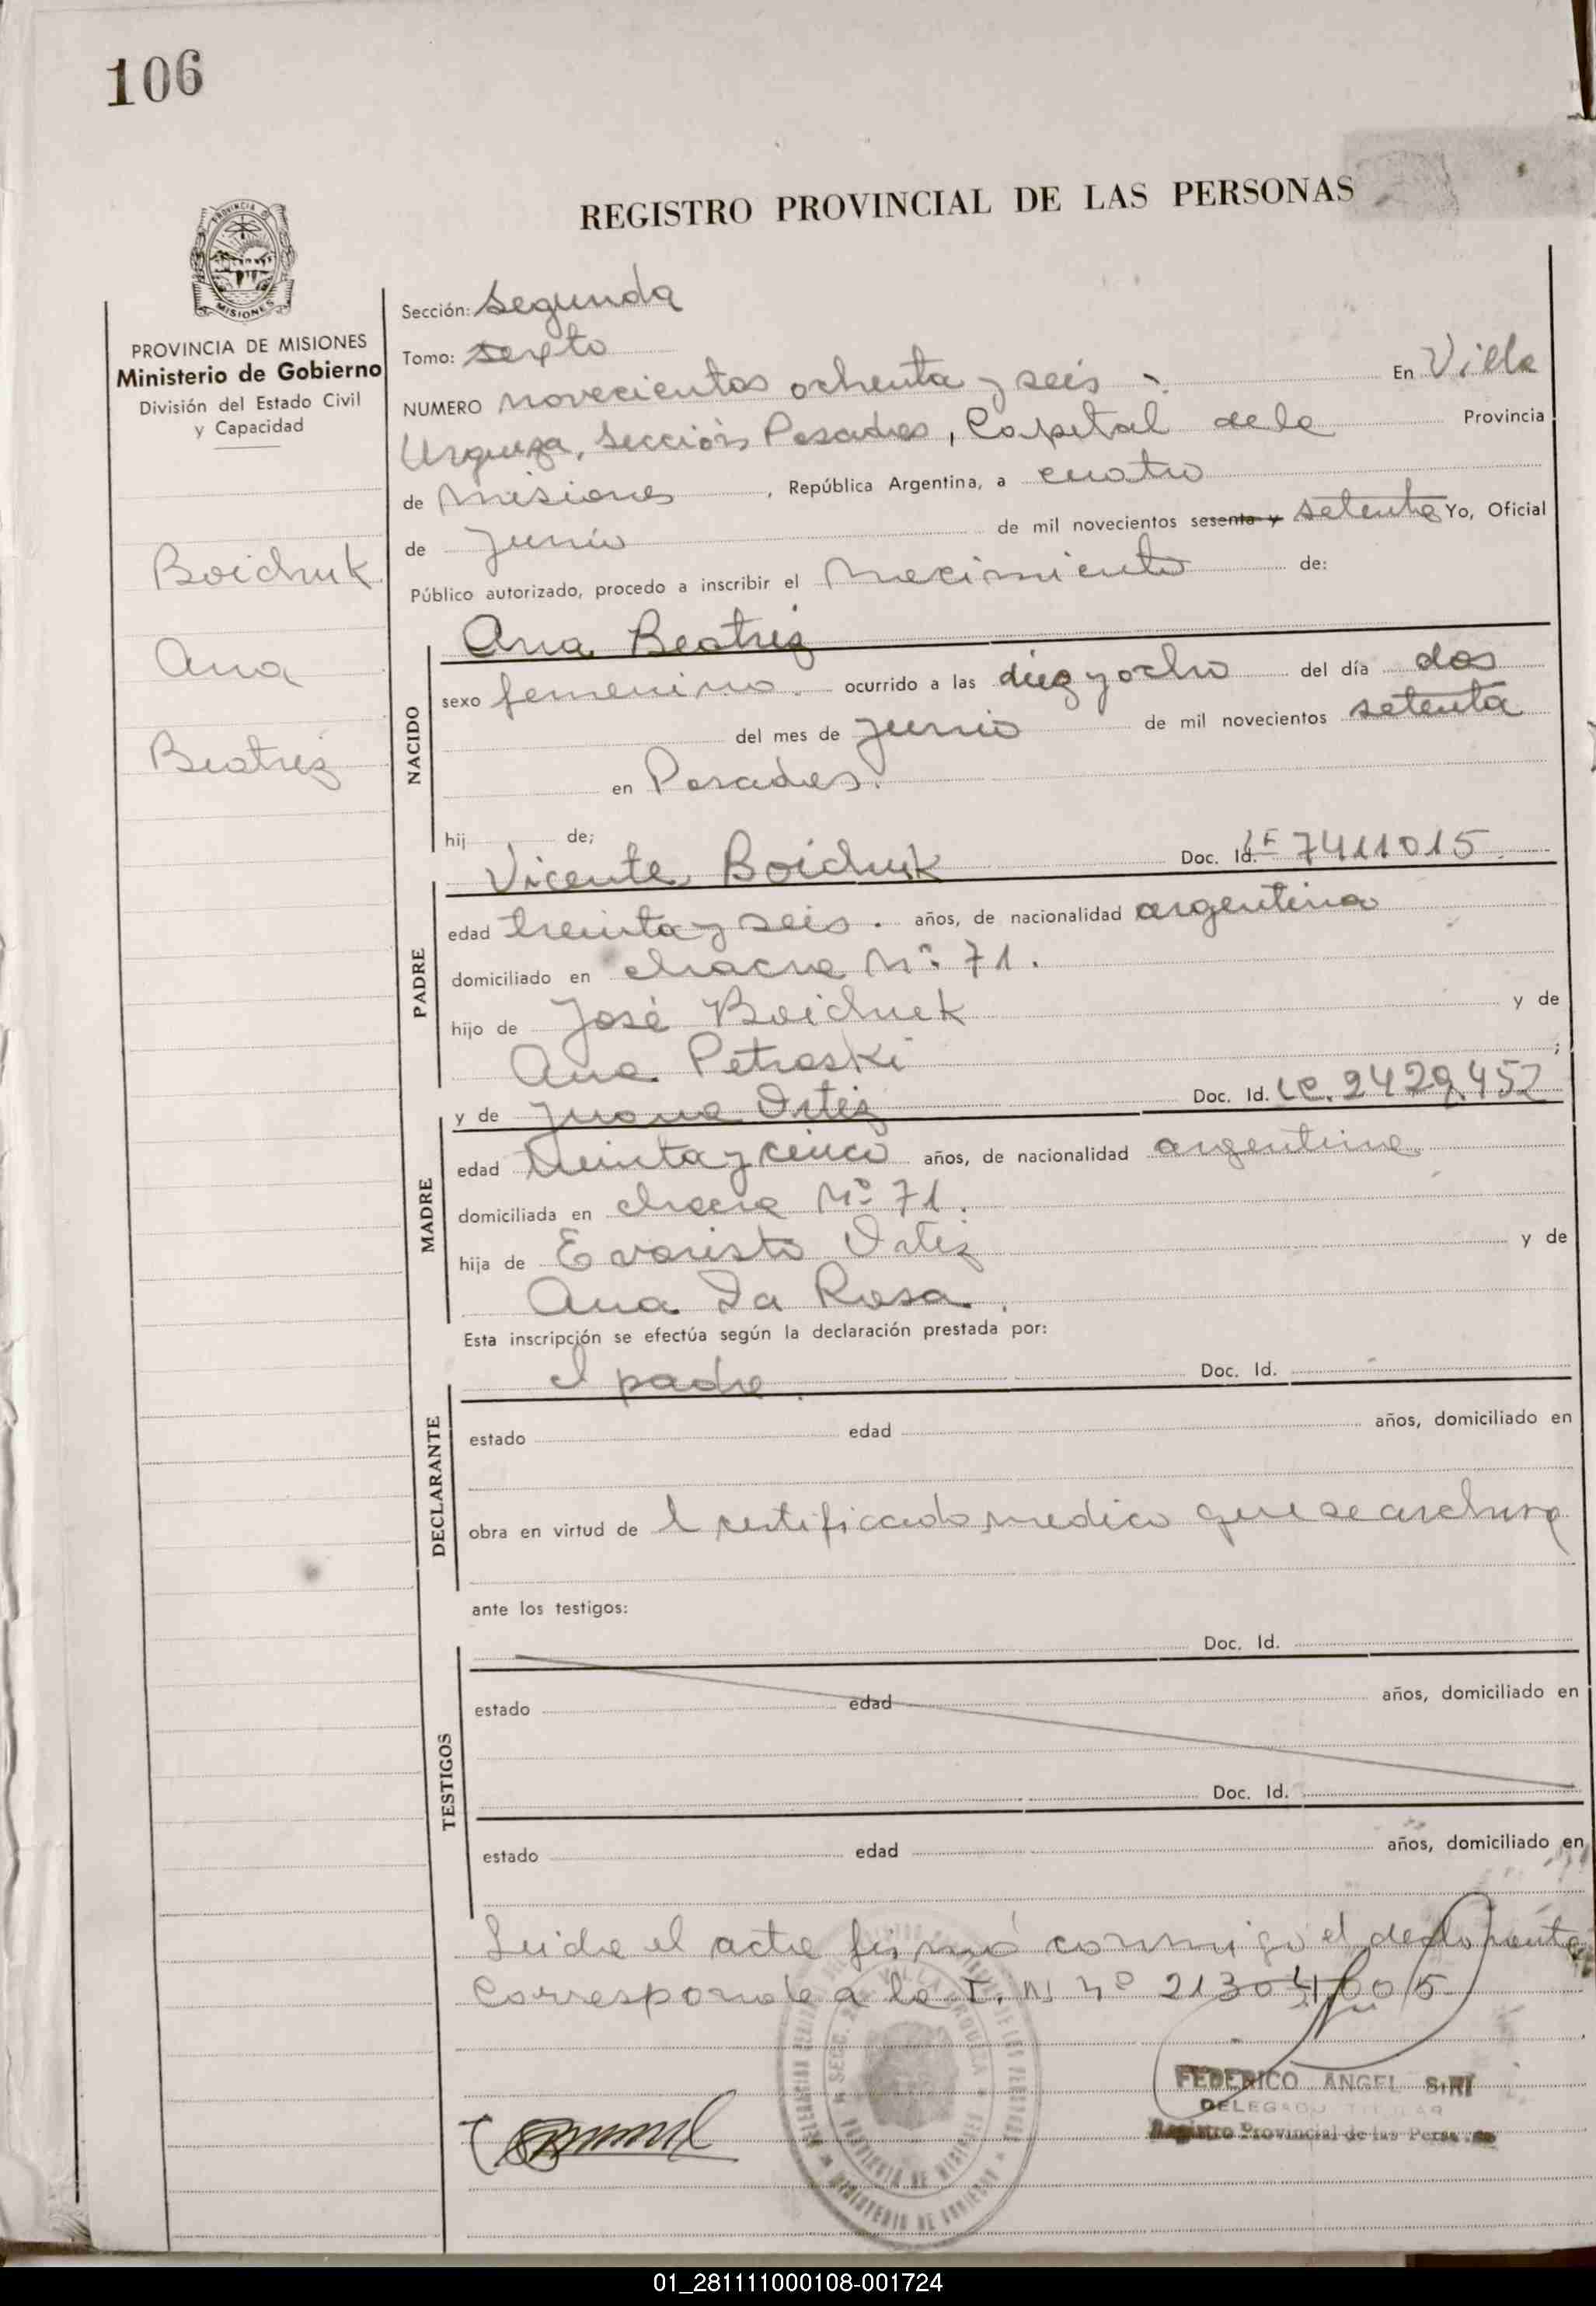 106
REGISTRO PROVINCIAL DE LAS PERSONAS
PROVINCIA DE MISIONES
PROVINCIA DE MISIONES
Ministerio de Gobierno
División del Estado Civil
y Capacidad
Boichuk
Ana
Beatriz
Sección: Segunda
Tomo: sexto
NUMERO novecientos ochenta y seis En Villa
Urquiza, Sección Posadas, Capital de la Provincia
de Misiones, República Argentina, a cuatro
de Junio de mil novecientos sesenta y setenta Yo, Oficial
Público autorizado, procedo a inscribir el Nacimiento de:
Ana Beatriz
NACIDO
sexo femenino. ocurrido a las diez y ocho del día dos
del mes de Junio de mil novecientos setenta
en Posadas.
hij de;
Vicente Boichuk Doc. Id. LE 7411015
PADRE
edad treinta y seis. años, de nacionalidad argentina
domiciliado en chacra Nº 71.
hijo de José Boichuk y de
Ana Petroski ;
y de Juana Ortiz Doc. Id. LC. 2429.452
MADRE
edad treinta y cinco años, de nacionalidad argentina
domiciliada en chacra Nº 71.
hija de Evaristo Ortiz y de
Ana Da Rosa.
Esta inscripción se efectúa según la declaración prestada por:
el padre. Doc. Id.
DECLARANTE
estado edad años, domiciliado en
obra en virtud de l certificado medico que se archiva
ante los testigos:
Doc. Id.
TESTIGOS
estado edad años, domiciliado en
Doc. Id.
estado edad años, domiciliado en
Leida el acta firmó conmigo el declarante
Corresponde a la I. Nº 21304.005
FEDERICO ANGEL SIRI
DELEGADO TITULAR
Registro Provincial de las Personas
SECC. 2ª VILLA URQUIZA
PROVINCIA DE MISIONES
MINISTERIO DE GOBIERNO
01_281111000108-001724